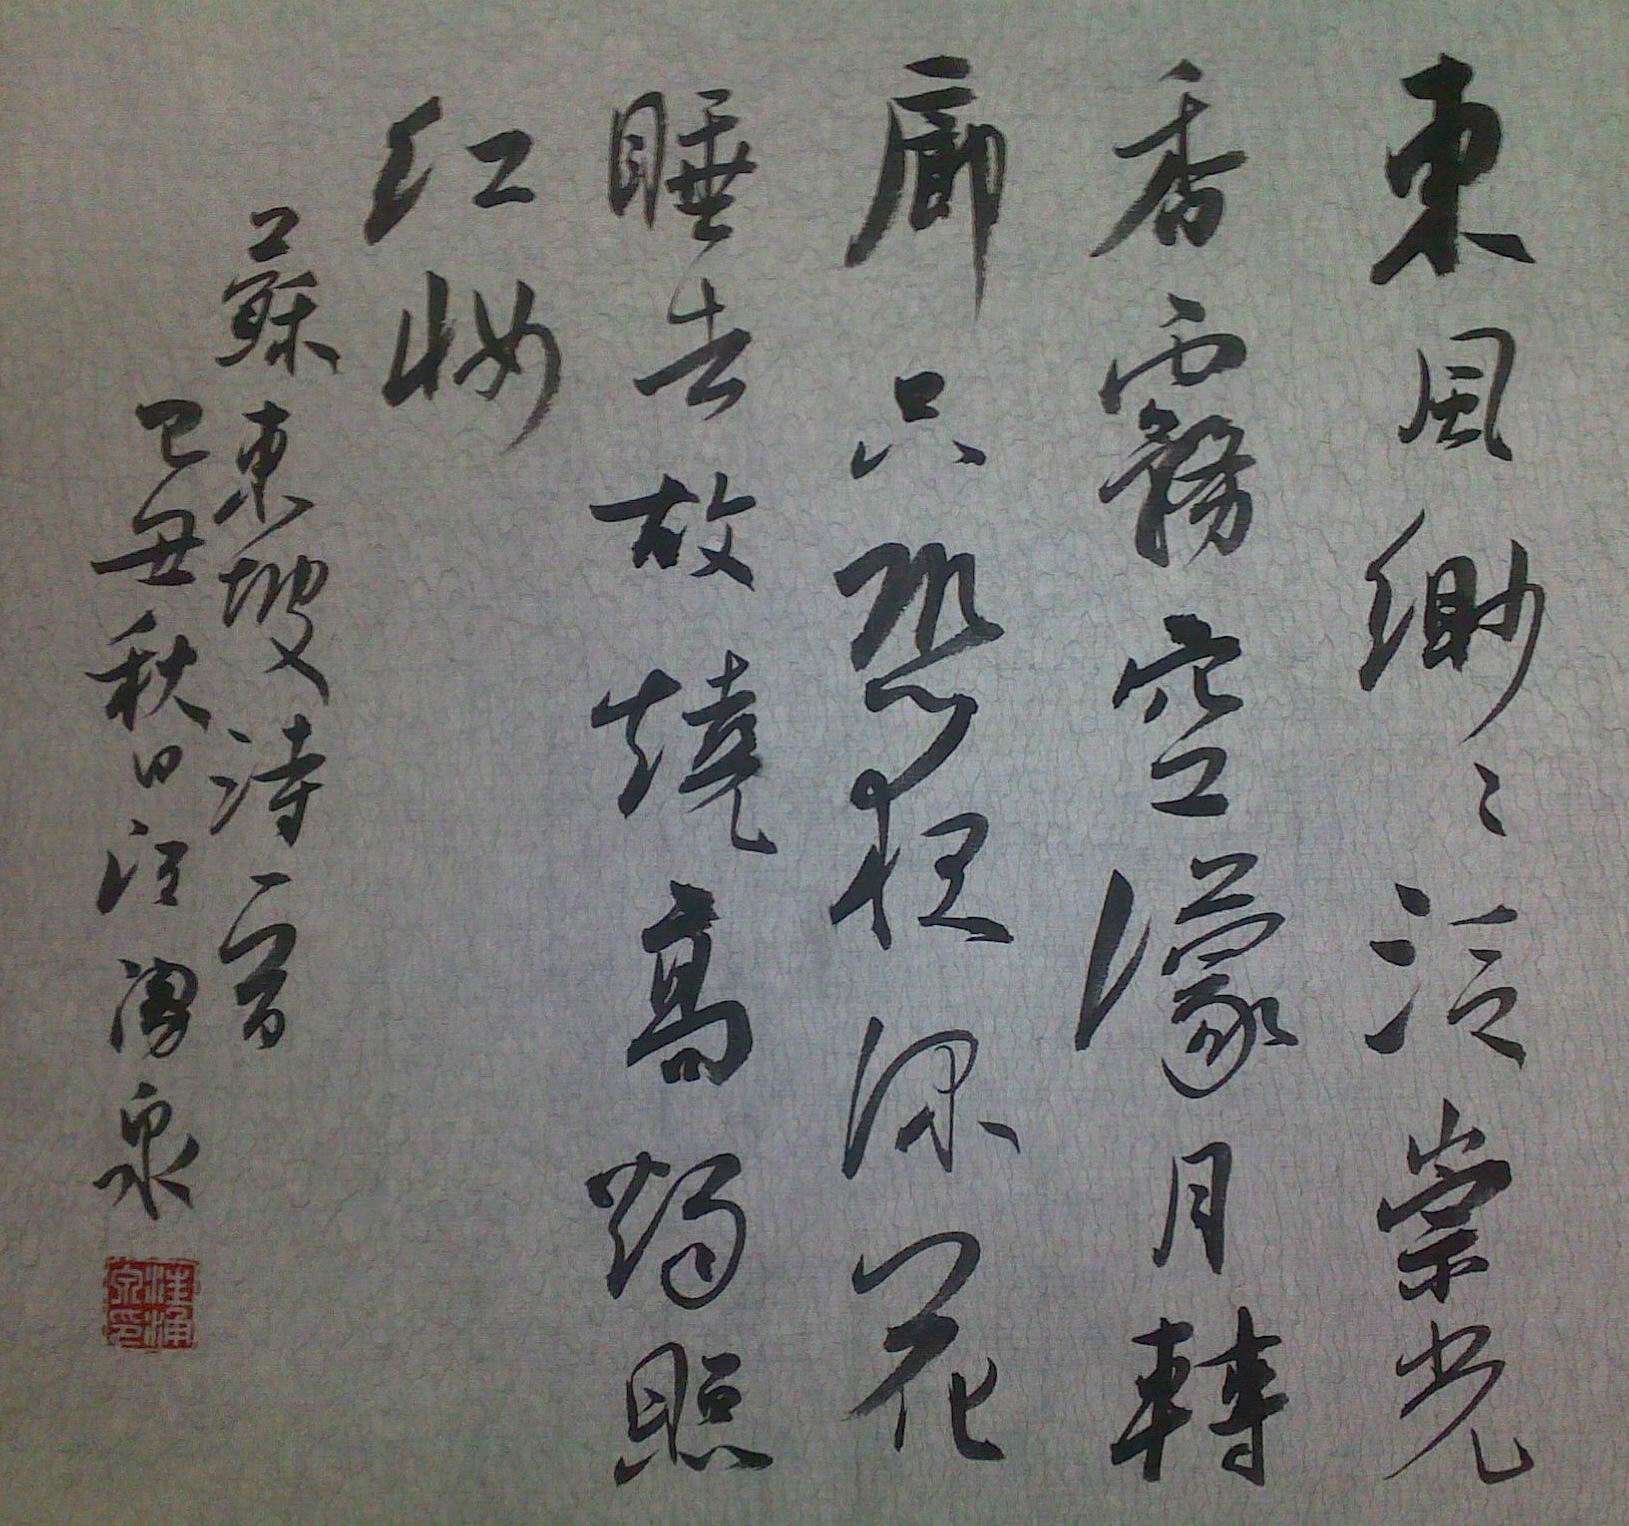 東風緲々泛崇光
香霧空濛月轉
廊只恐夜深花
睡去故燒高燭照
紅妝
蘇東坡詩一首
己丑秋日汪湧泉
汪涌泉印